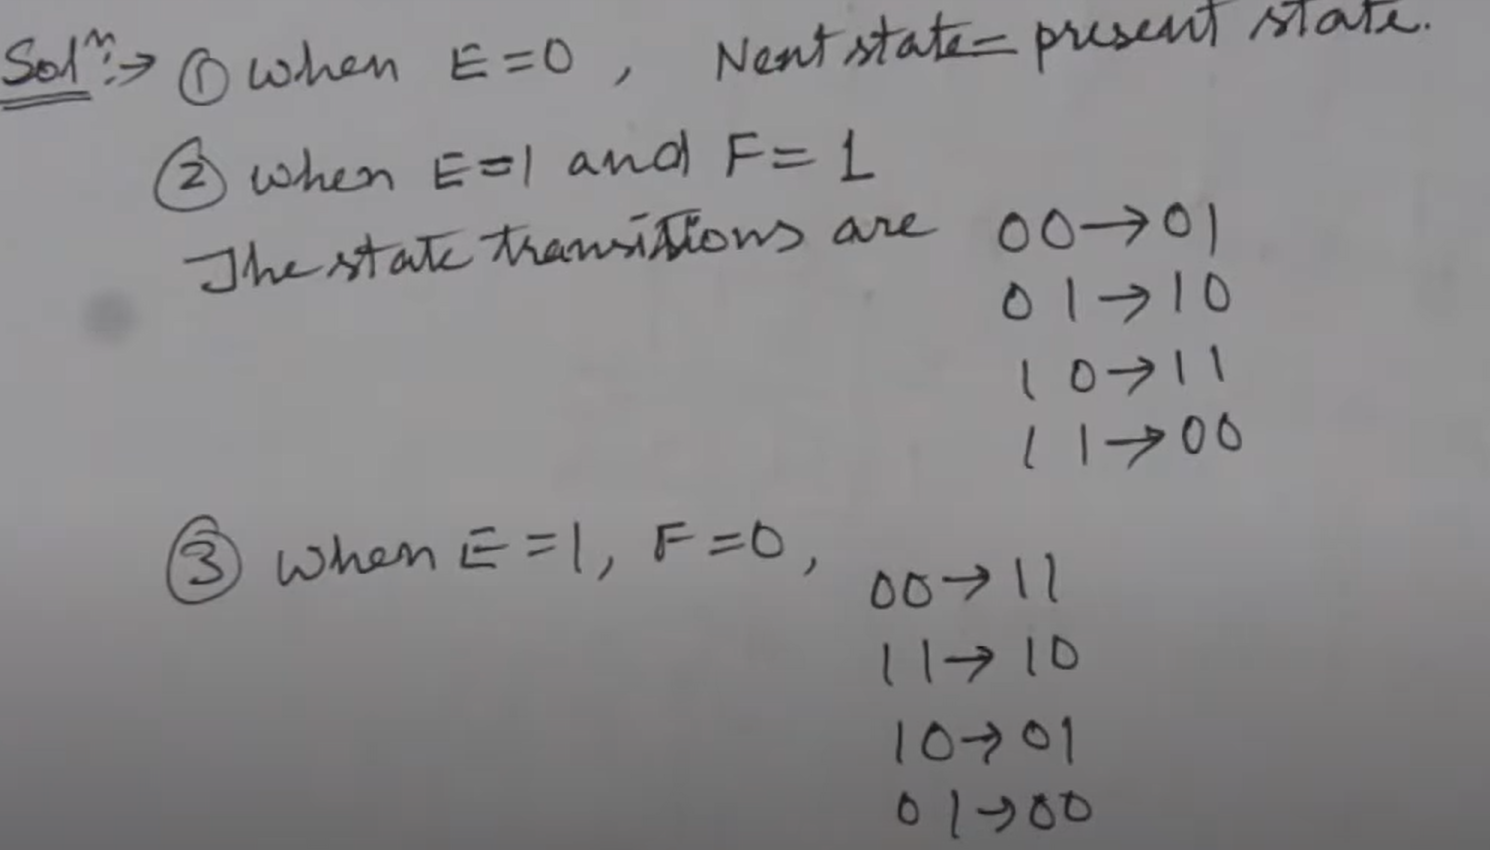 Solⁿ:→ ① when E=0, Next state= present state.
② when E=1 and F=1
The state transitions are 00→01
01→10
10→11
11→00
③ when E=1, F=0, 00→11
11→10
10→01
01→00